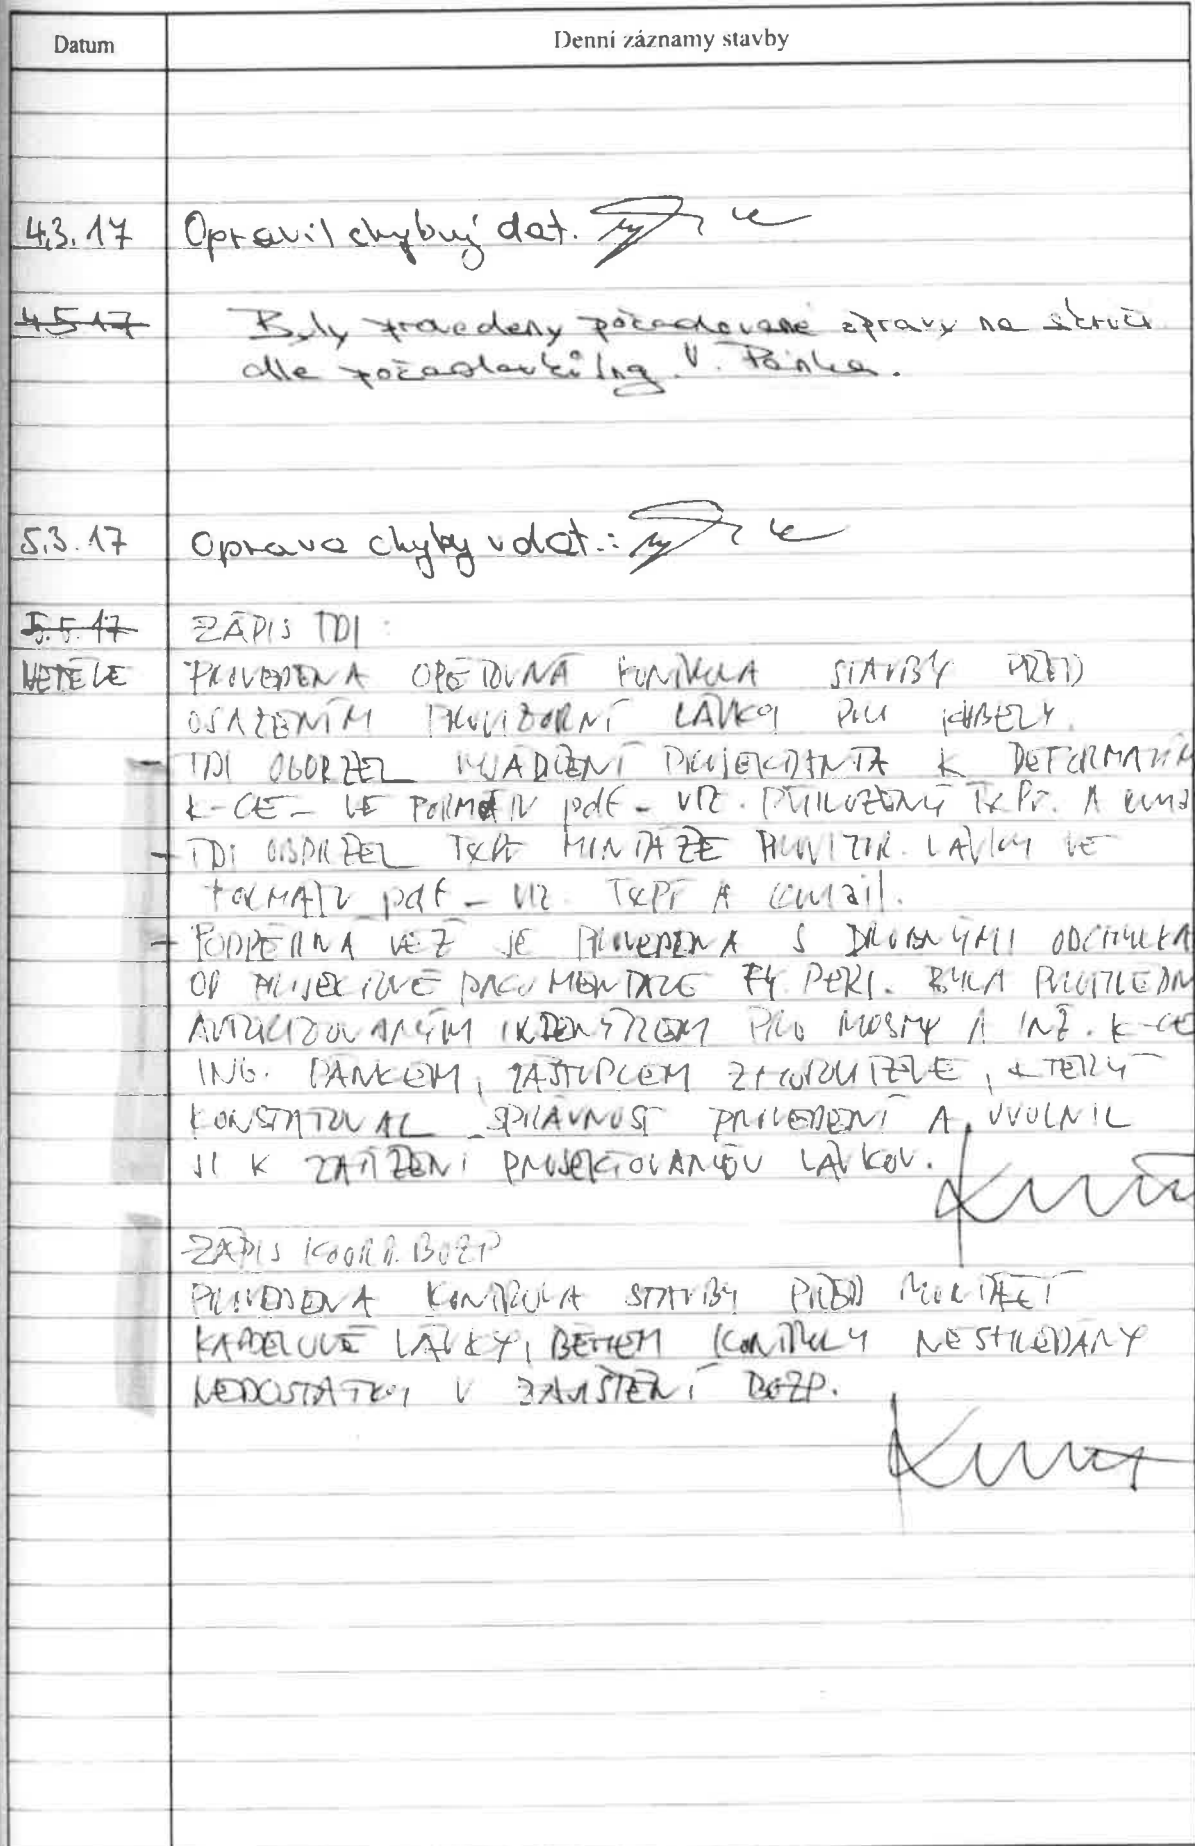 Datum
Denní záznamy stavby
4.3.17 Opravil chybný dat.
4.5.17 Byly provedeny požadované opravy na skruži
dle požadavků Ing. V. Pánka.
5.3.17 Oprava chyby v dat.:
5.5.17 ZÁPIS TDI:
NEDĚLE PROVEDENA OPĚTOVNÁ KONTROLA STAVBY PŘED
OSAZENÍM PROVIZORNÍ LÁVKY PRO KABELY.
- TDI OBDRŽEL VYJÁDŘENÍ PROJEKTANTA K DEFORMACÍM
K-CE - VE FORMÁTU pdf - VIZ. PŘILOŽENÝ TePř. A
- TDI OBDRŽEL TePř MONTÁŽE PROVIZOR. LÁVKY VE
FORMÁTU pdf - VIZ. TePř A email.
- PODPĚRNÁ VĚŽ JE PROVEDENA S DROBNÝMI ODCHYLKA
OD PROJEKTOVÉ DOKUMENTACE FY. PERI. BYLA PROHLÉDN
AUTORIZOVANÝM INŽENÝREM PRO MOSTY A INŽ. K-CE
ING. PÁNKEM, ZÁSTUPCEM ZHOTOVITELE, KTERÝ
KONSTATOVAL SPRÁVNOST PROVEDENÍ A UVOLNIL
JI K ZATÍŽENÍ PROJEKTOVANOU LÁVKOU.
ZÁPIS KOORD. BOZP
PROVEDENA KONTROLA STAVBY PŘED MONTÁŽÍ
KABELOVÉ LÁVKY, BĚHEM KONTROLY NESHLEDÁNY
NEDOSTATKY V ZAJIŠTĚNÍ BOZP.